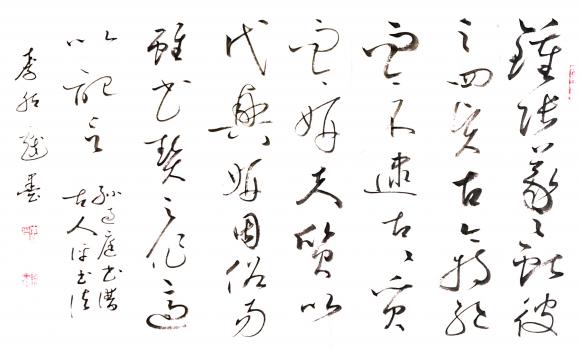 鍾張羲之獻彼
之四賢古今特絕
而今不逮古古質
而今妍夫質以
代興妍因俗易
雖書契之作適
以記言
孫過庭書譜
古人評書法